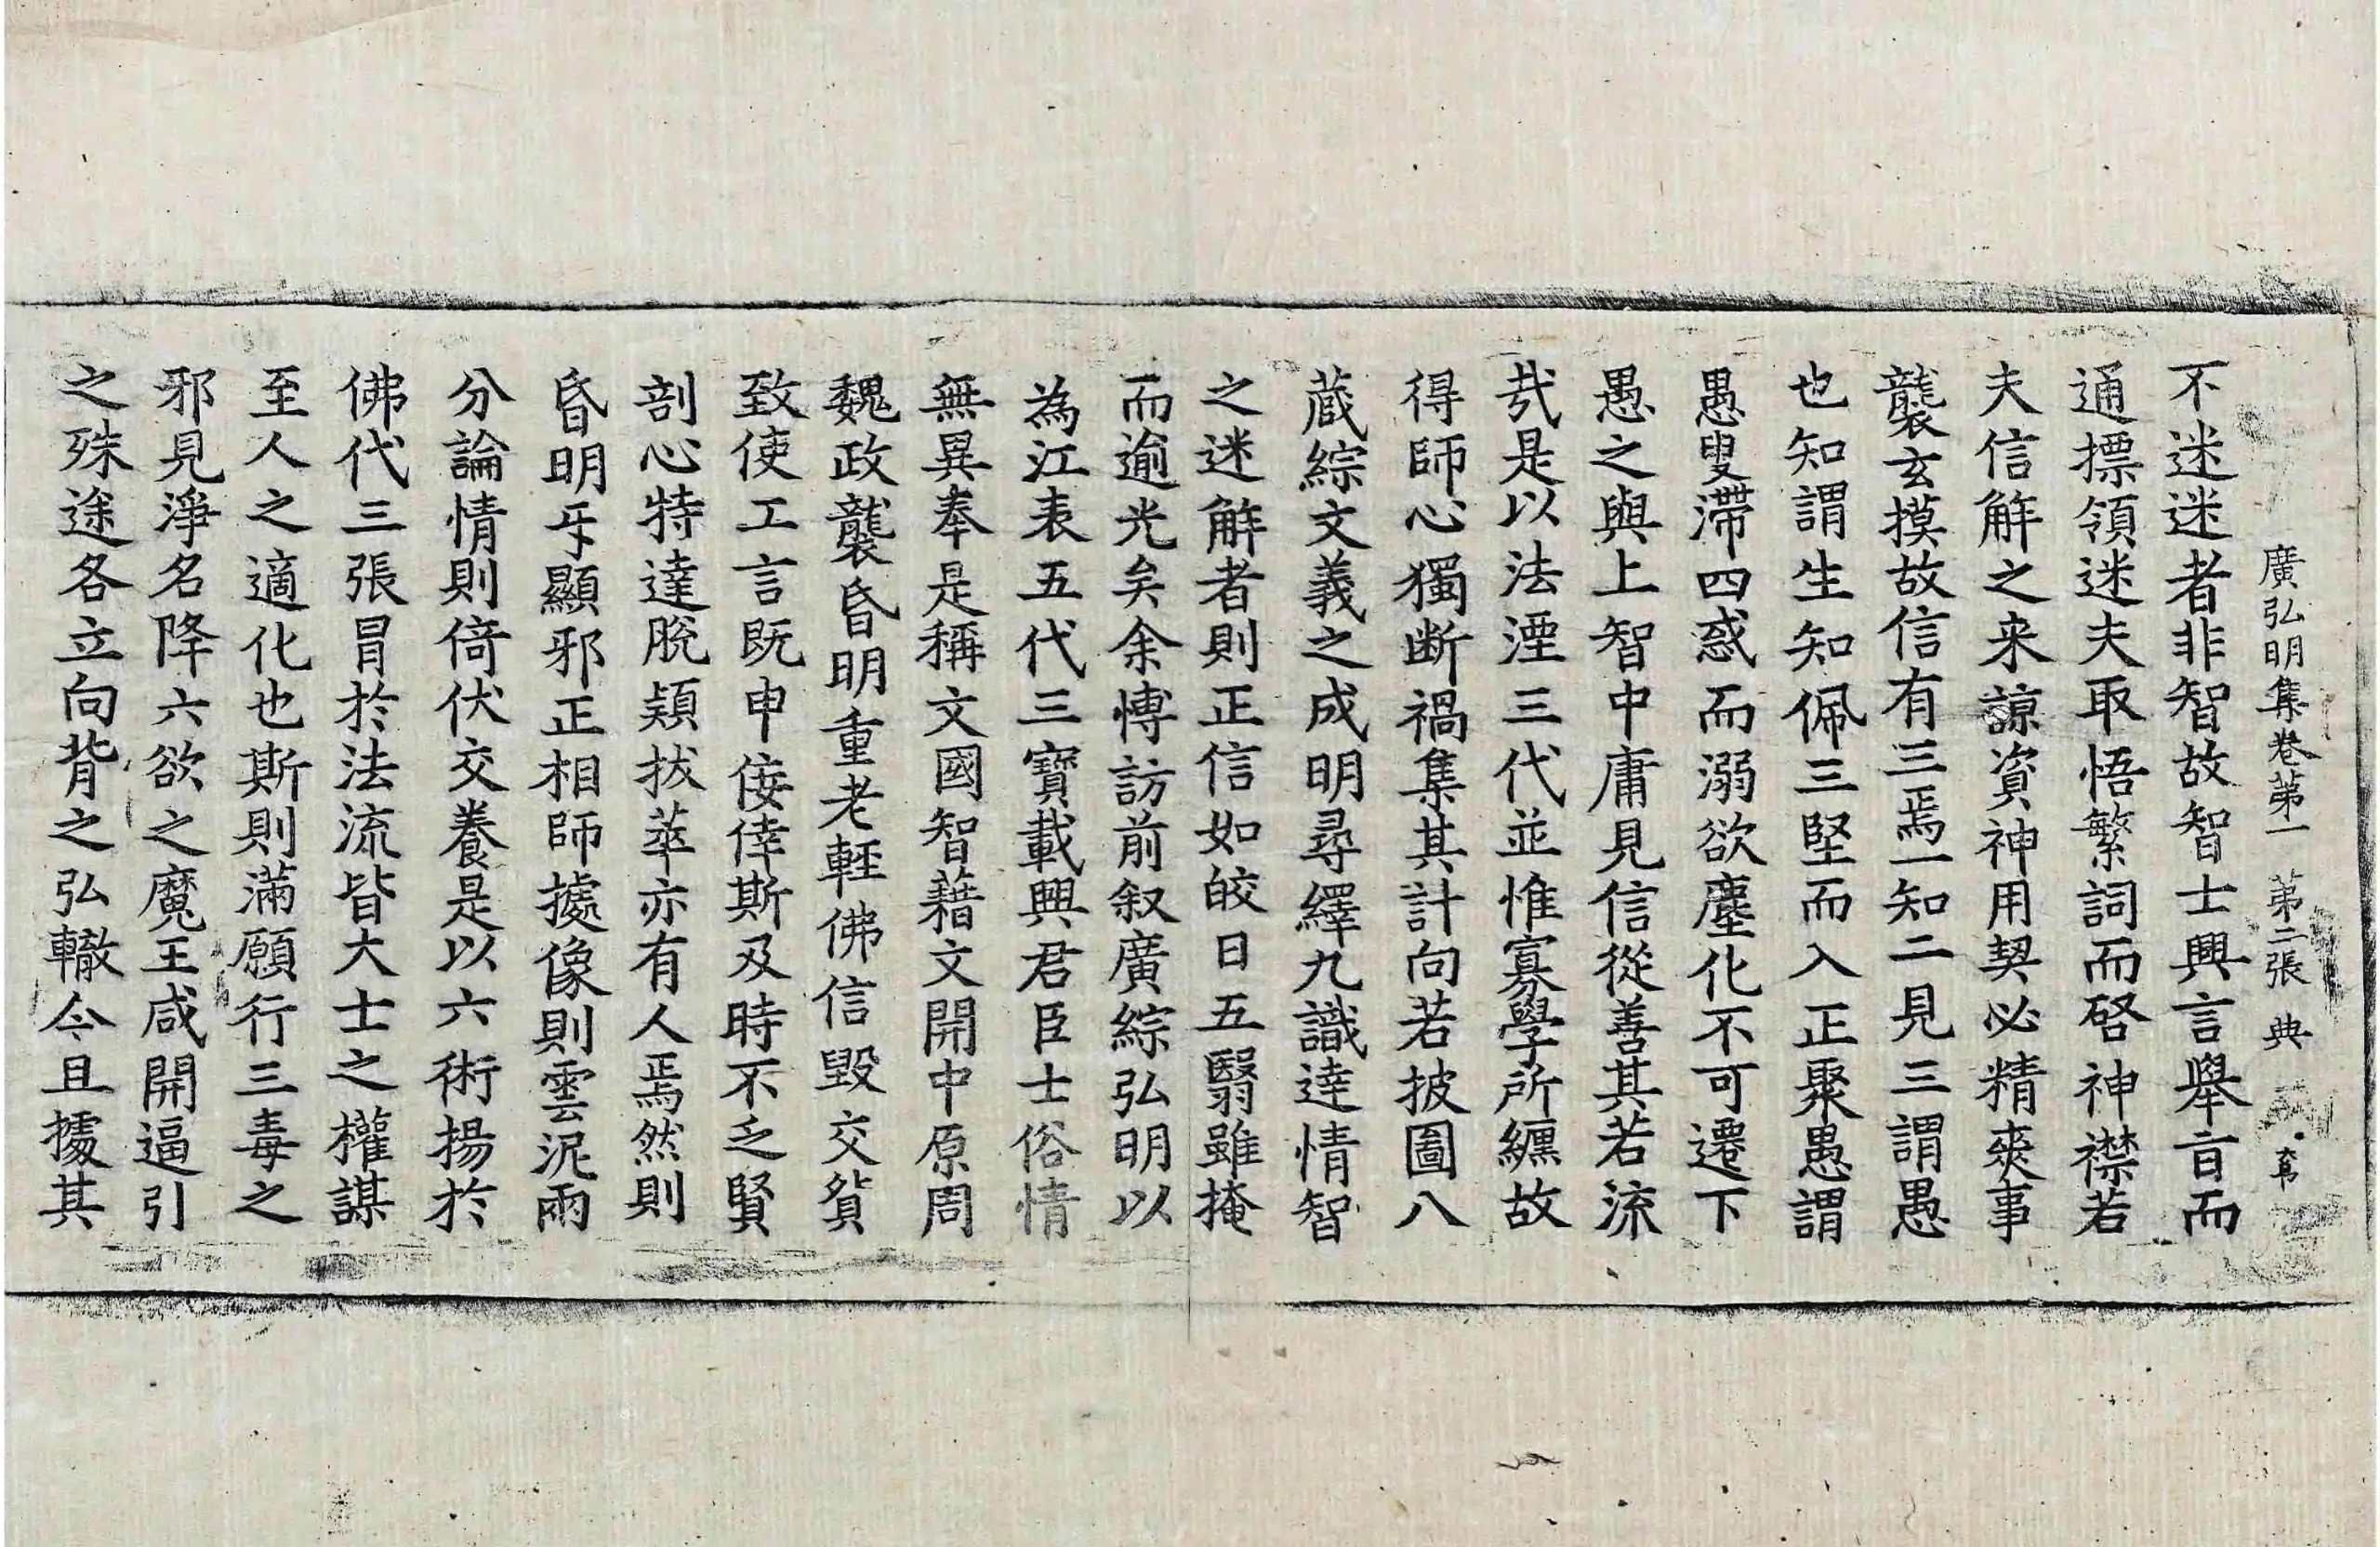 廣弘明集卷第一 第二張 典
不迷迷者非智故智士興言舉旨而
通摽領迷夫取悟繁詞而啓神襟若
夫信解之来諒資神用契必精爽事
襲玄摸故信有三焉一知二見三謂愚
也知謂生知佩三堅而入正聚愚謂
愚叟滯四惑而溺欲塵化不可遷下
愚之與上智中庸見信從善其若流
哉是以法湮三代並惟寡學所纏故
得師心獨断禍集其計向若披圖八
蔵綜文義之成明尋繹九識達情智
之迷解者則正信如皎日五翳雖掩
而逾光矣余博訪前叙廣綜弘明以
為江表五代三寶載興君臣士俗情
無異奉是稱文國智藉文開中原周
魏政襲昏明重老輕佛信毀交貿
致使工言既申佞倖斯及時不乏賢
剖心特達脫穎拔萃亦有人焉然則
昏明㸦顯邪正相師據像則雲泥兩
分論情則倚伏交養是以六術揚於
佛代三張冒於法流皆大士之權謀
至人之適化也斯則滿願行三毒之
邪見淨名降六欲之魔王咸開逼引
之殊途各立向背之弘轍今且據其